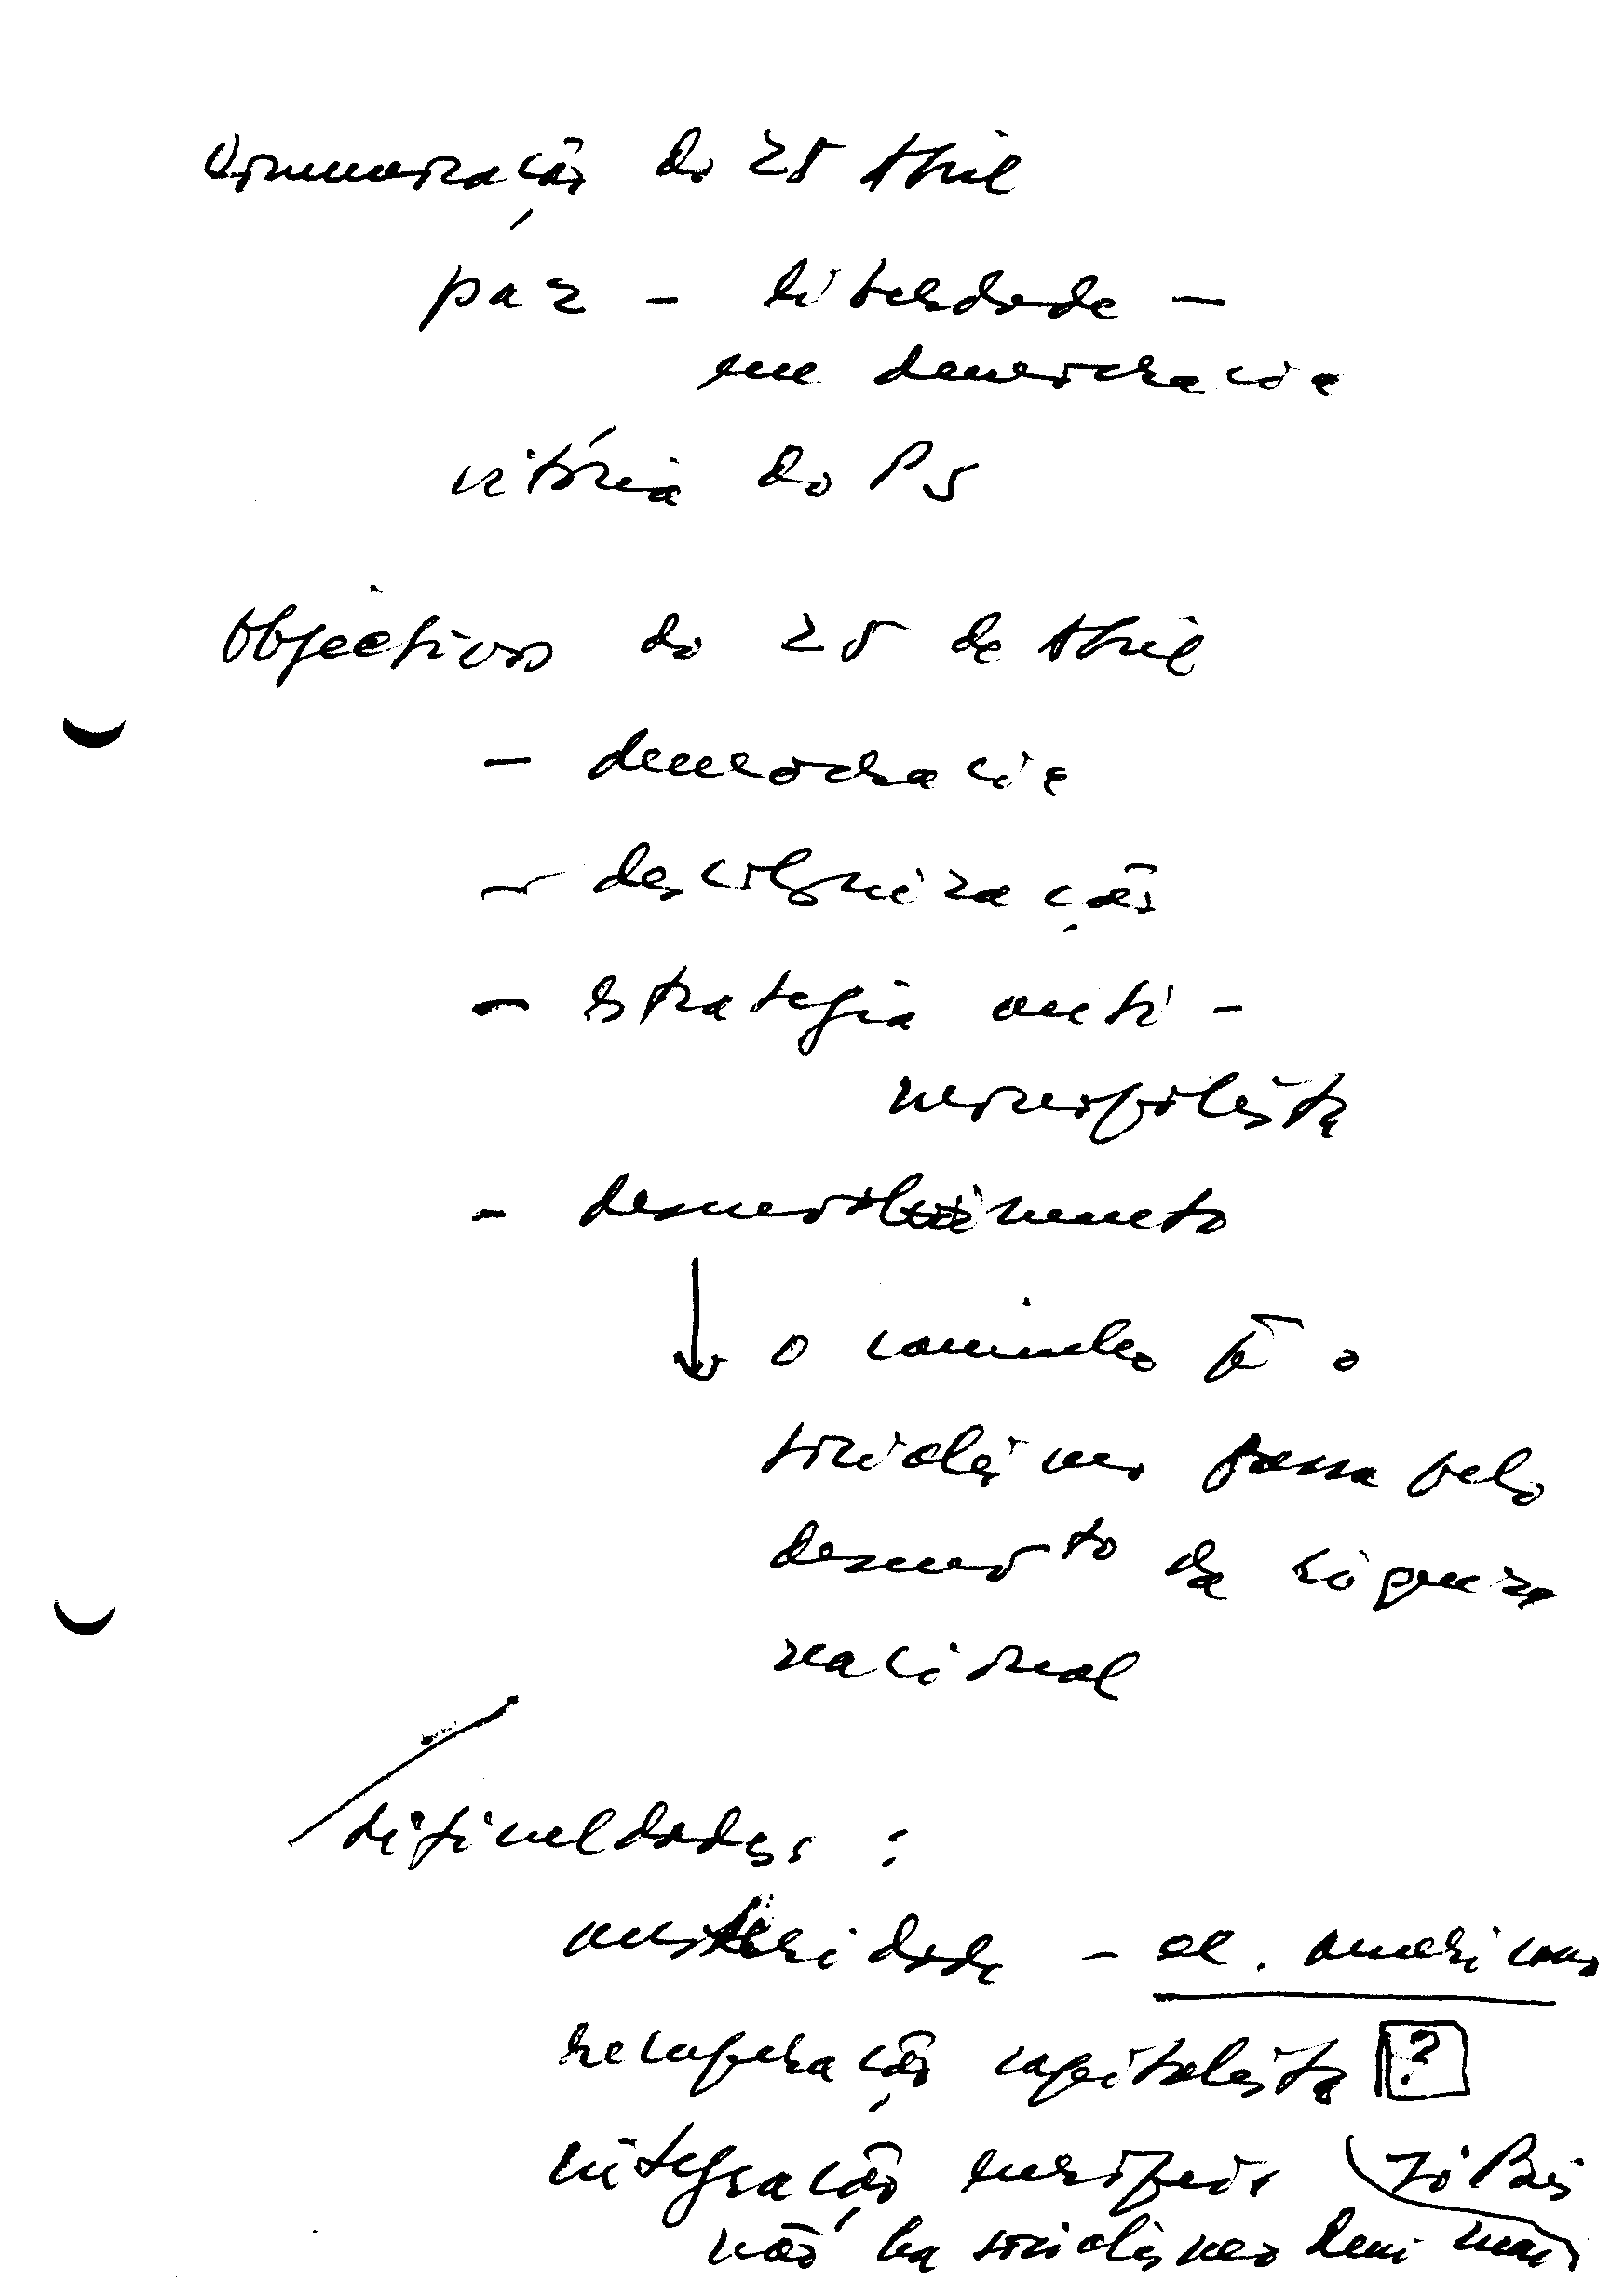 Comemoração do 25 Abril
paz - liberdade -
em democracia
vitória do PS
Objectivos do 25 de Abril
- democracia
- descolonização
- estrategia anti-
monopolista
- desenvolvimento
↓ o caminho pª o
socialismo passa pelo
desenvolvto da riqueza
nacional
dificuldades :
austeridade - al. americano
recuperação capitalista ?
integração europeia
não há socialismo